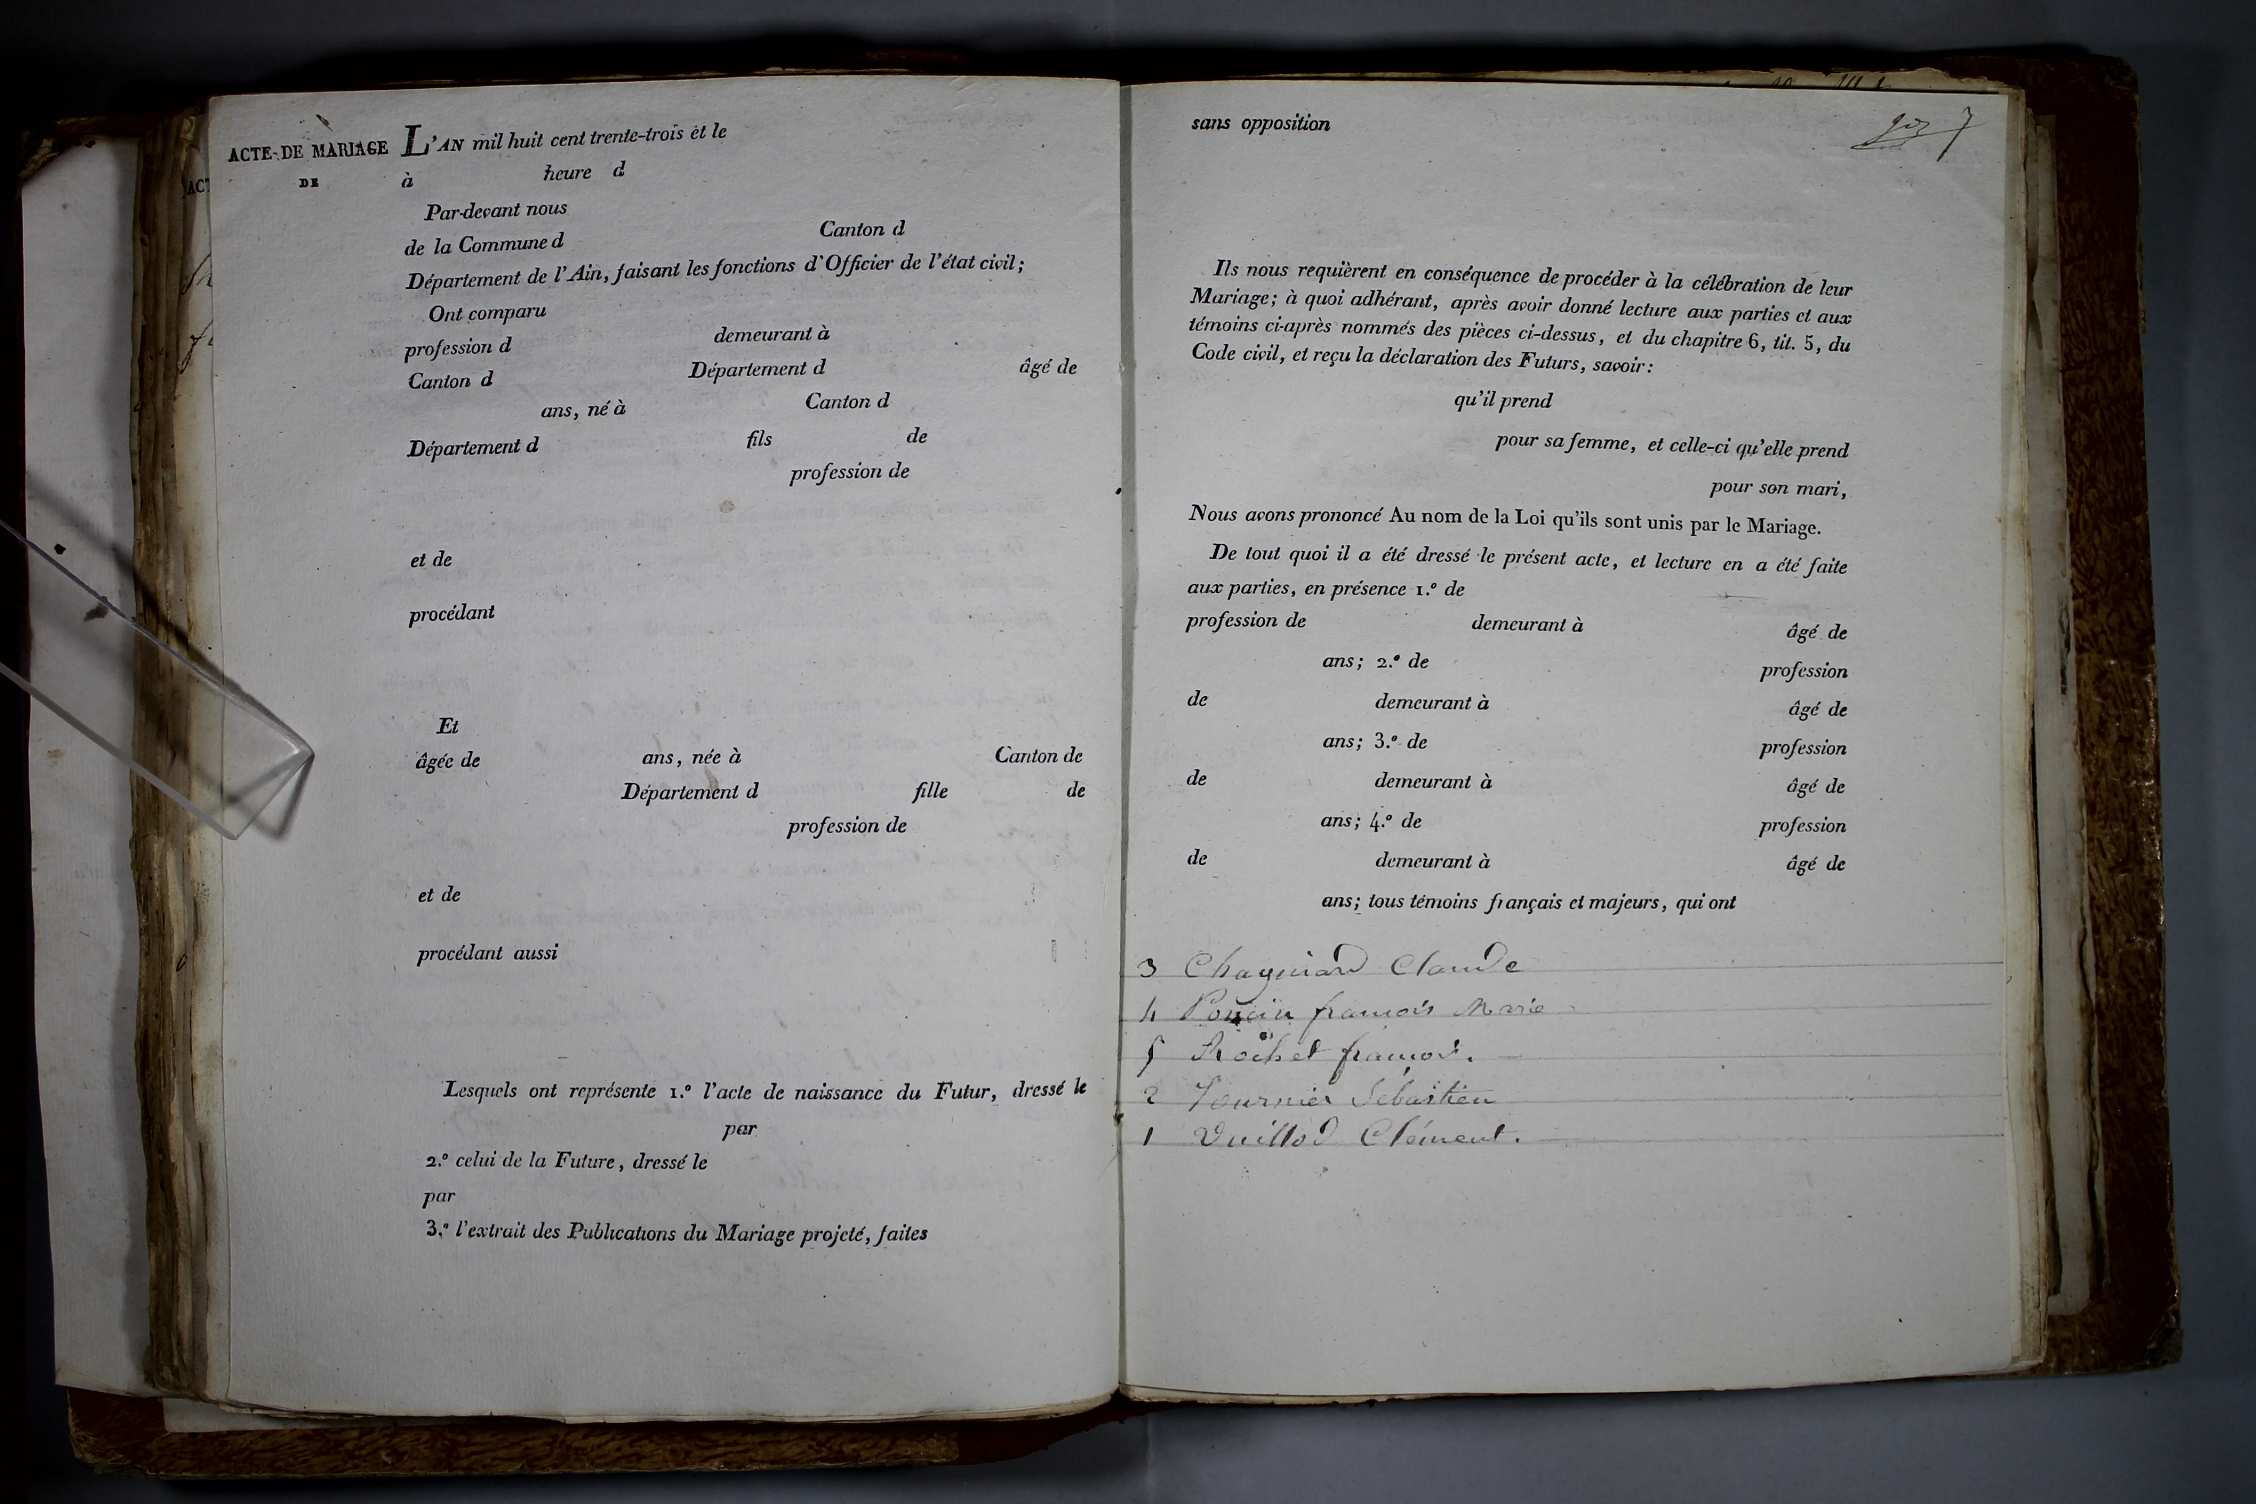 ACTE DE MARIAGE
DE
L'AN mil huit cent trente-trois et le
à heure d
Par-devant nous
de la Commune d Canton d
Département de l'Ain, faisant les fonctions d'Officier de l'état civil;
Ont comparu
profession d demeurant à
Canton d Département d âgé de
ans, né à Canton d
Département d fils de
profession de
et de
procédant
Et
âgée de ans, née à Canton de
Département d fille de
profession de
et de
procédant aussi
Lesquels ont représente 1.º l'acte de naissance du Futur, dressé le
par
2.º celui de la Future, dressé le
par
3.º l'extrait des Publications du Mariage projeté, faites
sans opposition
7
Ils nous requièrent en conséquence de procéder à la célébration de leur
Mariage; à quoi adhérant, après avoir donné lecture aux parties et aux
témoins ci-après nommés des pièces ci-dessus, et du chapitre 6, tit. 5, du
Code civil, et reçu la déclaration des Futurs, savoir:
qu'il prend
pour sa femme, et celle-ci qu'elle prend
pour son mari,
Nous avons prononcé Au nom de la Loi qu'ils sont unis par le Mariage.
De tout quoi il a été dressé le présent acte, et lecture en a été faite
aux parties, en présence 1.º de
profession de demeurant à âgé de
ans; 2.º de profession
de demeurant à âgé de
ans; 3.º de profession
de demeurant à âgé de
ans; 4.º de profession
de demeurant à âgé de
ans; tous témoins français et majeurs, qui ont
3 Claude
4 françois Marie
5 Rochet françois.
2 Sébastien
1 Vuillod Clément.